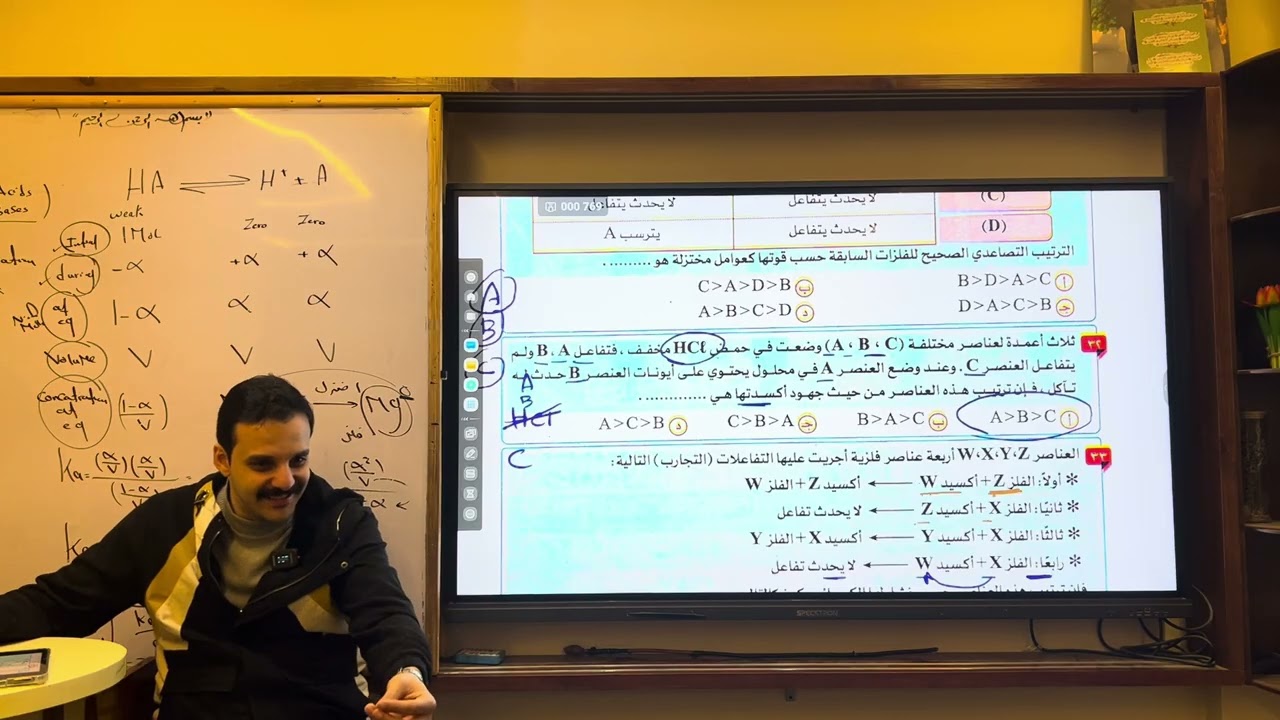 HA ⇌ H⁺ + A
weak
Zero Zero
Initial 1 Mol
during -α +α +α
at eq 1-α α α
Volume V V V
Concentration at eq (1-α / V)
Mg
SPECKTRON
000 769
(C) لا يحدث يتفاعل
(D) لا يحدث يتفاعل يترسب A
الترتيب التصاعدي الصحيح للفلزات السابقة حسب قوتها كعوامل مختزلة هو ..........
أ B>D>A>C ب C>A>D>B
جـ D>A>C>B د A>B>C>D
A
B
C
٣٢ ثلاث أعمدة لعناصر مختلفة (A ، B ، C) وضعت في حمض HCℓ مخفف ، فتفاعل B ، A ولم
يتفاعل العنصر C، وعند وضع العنصر A في محلول يحتوي على أيونات العنصر B حدث له
تآكل ، فإن ترتيب هذه العناصر من حيث جهود أكسدتها هي ..............
أ A>B>C ب B>A>C جـ C>B>A د A>C>B
A
B
C
٣٣ العناصر W،X،Y،Z أربعة عناصر فلزية أجريت عليها التفاعلات (التجارب) التالية:
* أولاً: الفلز Z + أكسيد W ← أكسيد Z + الفلز W
* ثانيًا: الفلز X + أكسيد Z ← لا يحدث تفاعل
* ثالثًا: الفلز X + أكسيد Y ← أكسيد X + الفلز Y
* رابعًا: الفلز X + أكسيد W ← لا يحدث تفاعل